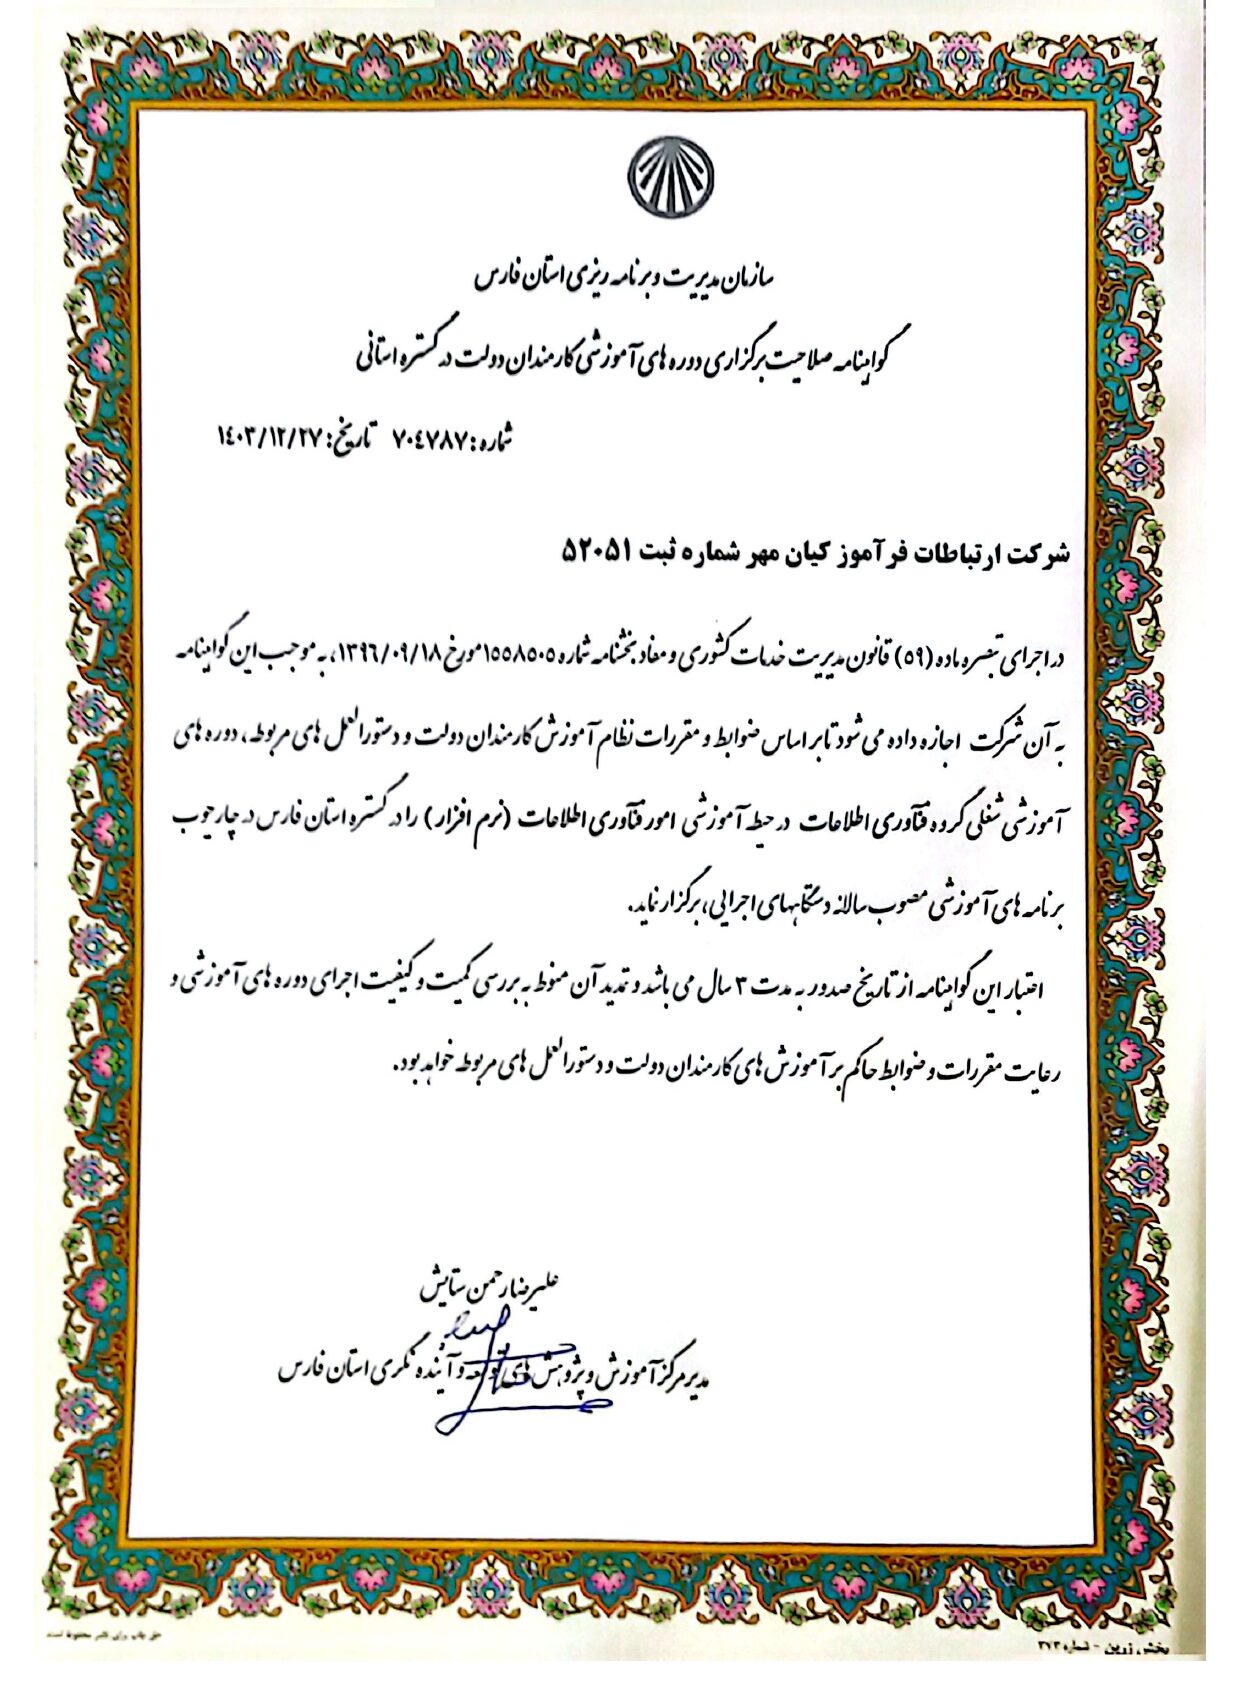 سازمان مدیریت و برنامه ریزی استان فارس
گواهینامه صلاحیت برگزاری دوره های آموزشی کارمندان دولت در گستره استانی
شماره: ۷۰۴۷۸۷ تاریخ: ۱۴۰۳/۱۲/۲۷
شرکت ارتباطات فرآموز کیان مهر شماره ثبت ۵۲۰۵۱
در اجرای تبصره ماده (۵۹) قانون مدیریت خدمات کشوری و مفاد بخشنامه شماره ۱۵۵۸۵۰۵ مورخ ۱۳۹۶/۰۹/۱۸، به موجب این گواهینامه
به آن شرکت اجازه داده می شود تا بر اساس ضوابط و مقررات نظام آموزش کارمندان دولت و دستورالعمل های مربوطه، دوره های
آموزشی شغلی گروه فنآوری اطلاعات در حیطه آموزشی امور فنآوری اطلاعات (نرم افزار) را در گستره استان فارس در چارچوب
برنامه های آموزشی مصوب سالانه دستگاههای اجرایی، برگزار نماید.
اعتبار این گواهینامه از تاریخ صدور به مدت ۳ سال می باشد و تمدید آن منوط به بررسی کمیت و کیفیت اجرای دوره های آموزشی و
رعایت مقررات و ضوابط حاکم بر آموزش های کارمندان دولت و دستورالعمل های مربوطه خواهد بود.
علیرضا رحمن ستایش
مدیر مرکز آموزش و پژوهش های توسعه و آینده نگری استان فارس
پخش زرین - شماره ۲۷۳
حق چاپ برای ناشر محفوظ است